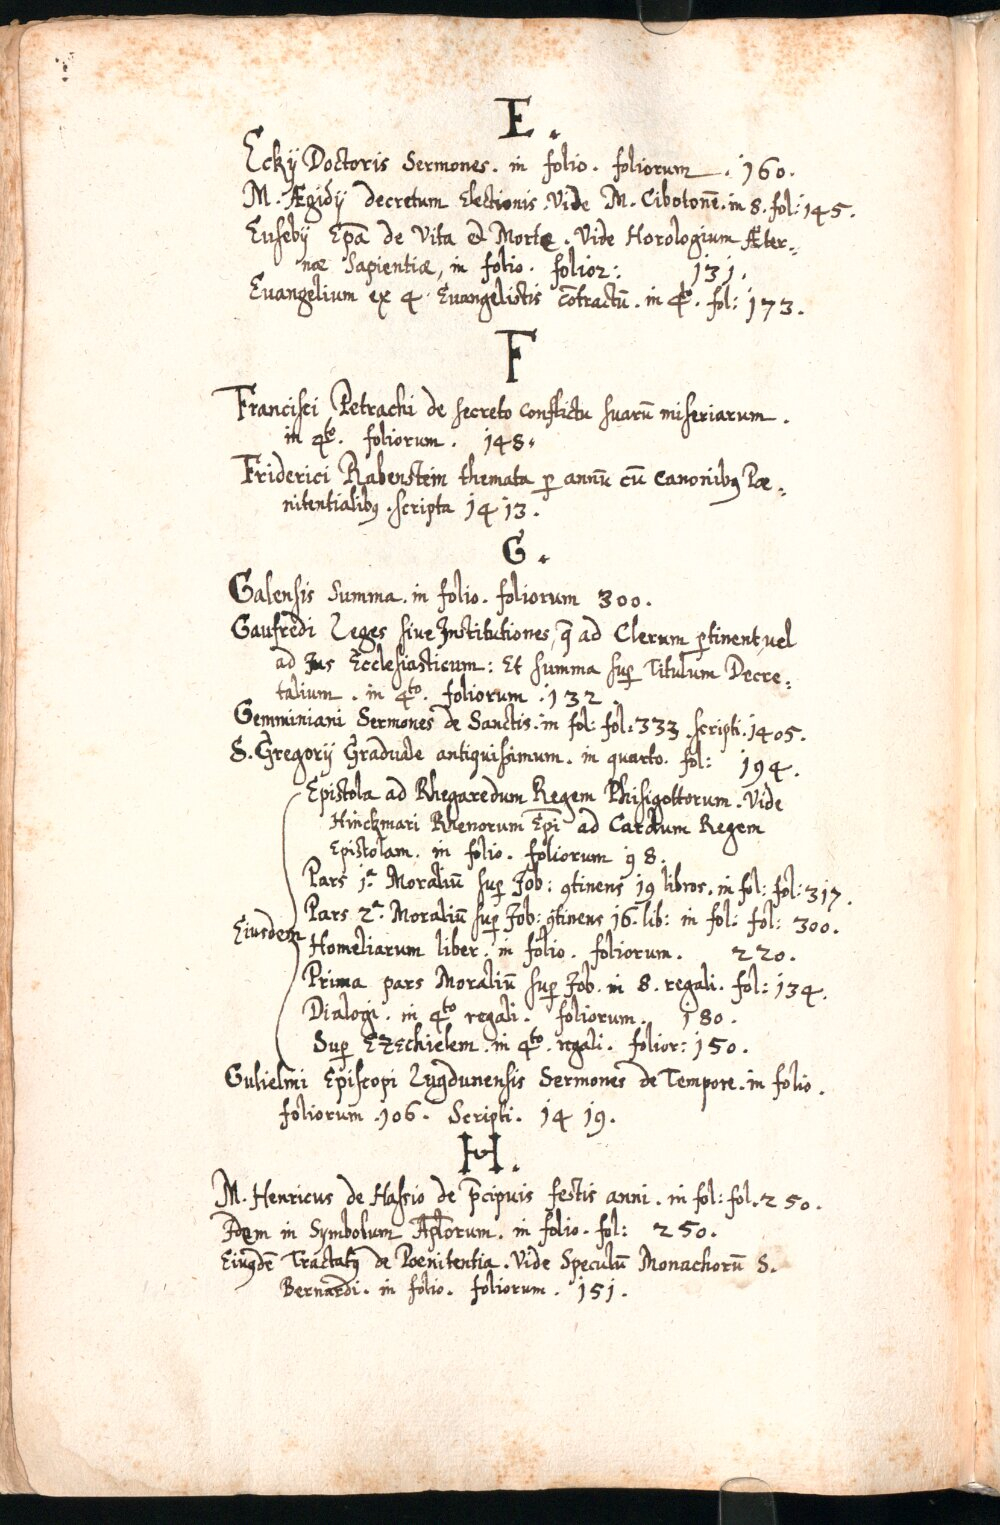 E.
Eckij Doctoris Sermones. in folio. foliorum. 160.
M. Ægidij decretum Electionis. Vide M. Cibotonē. in 8. fol: 145.
Eusebij Ep̄a de Vita et Morte. Vide Horologium Æter-
næ Sapientiæ, in folio. folior: 131.
Euangelium ex 4. Euangelistis cōtractū. in 4to. fol: 173.
F
Francisci Petrachi de secreto conflictu suarū miseriarum.
in 4to. foliorum. 148.
Friderici Rabenstein themata ꝑ annū cū canonibꝰ Pæ-
nitentialibꝰ. scripta 1413.
G.
Galensis Summa. in folio. foliorum 300.
Gaufredi Leges siue Institutiones, q̄ ad Clerum ꝑtinent, uel
ad Jus Ecclesiasticum: Et summa suꝑ Titulum Decre-
talium. in 4to. foliorum. 132.
Gemminiani Sermones de Sanctis. in fol: fol: 333. scripti. 1405.
S. Gregorij Graduale antiquissimum. in quarto. fol: 194.
Epistola ad Rhegaredum Regem Phisigottorum. Vide
Hinckmari Rhenorum Ep̄i ad Carolum Regem
Epistolam. in folio. foliorum 98.
Pars 1a. Moraliū suꝑ Job: ꝯtinens 19 libros. in fol: fol: 317.
Pars 2a. Moraliū suꝑ Job: ꝯtinens 16. lib: in fol: fol: 300.
Eiusdem
Homeliarum liber. in folio. foliorum. 220.
Prima pars Moraliū suꝑ Job. in 8. regali. fol: 134.
Dialogi. in 4to regali. foliorum. 180.
Suꝑ Ezechielem. in 4to. regali. folior: 150.
Gulielmi Episcopi Lugdunensis Sermones de Tempore. in folio.
foliorum. 106. Scripti. 1419.
H.
M. Henricus de Hassio de p̄cipuis festis anni. in fol: fol. 250.
Idem in Symbolum Ap̄lorum. in folio. fol: 250.
Eiusdē Tractatꝰ de Poenitentia. Vide Speculū Monachorū S.
Bernardi. in folio. foliorum. 151.